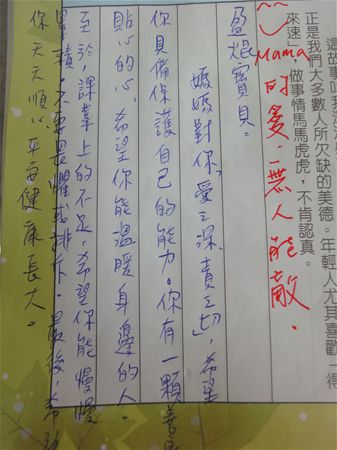 這故事
正是我們大多數人所欠缺的美德。年輕人尤其喜歡「得
來速」，做事情馬馬虎虎，不肯認真。
Mama的愛：無人能敵.
盈焜寶貝：
媽媽對你「愛之深、責之切」，希望
你具備保護自己的能力。你有一顆善良
貼心的心、希望你能溫暖身邊的人。
至於，課業上的不足，希望你能慢慢
累積，不要畏懼或排斥。最後，希望
你天天順心、平安健康長大。